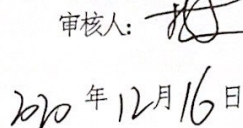 审核人:
2020年12月16日